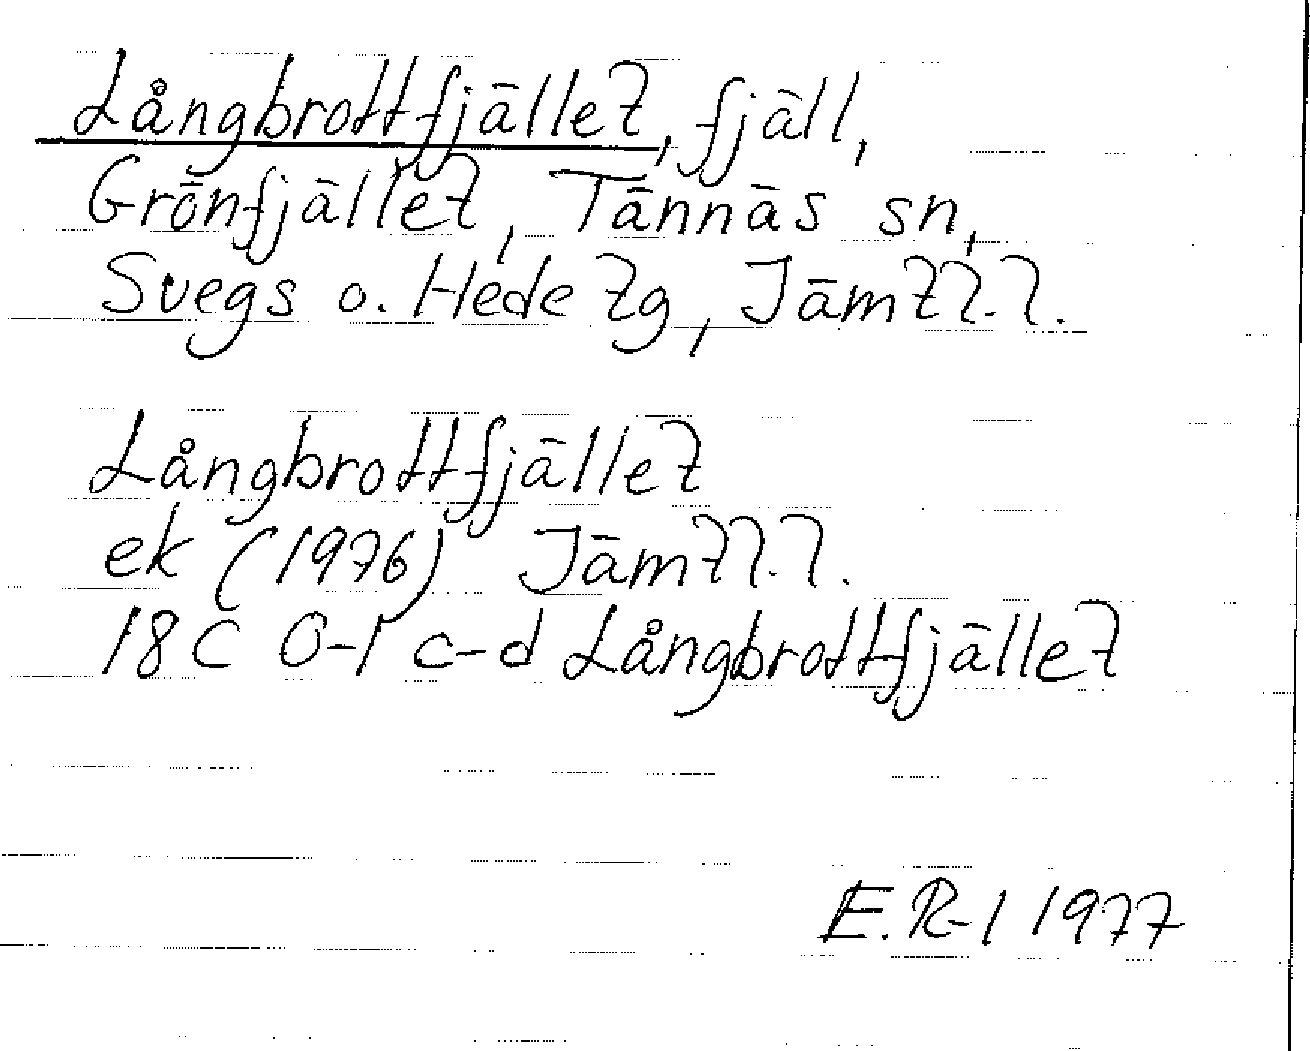 Långbrottfjället, fjäll,
Grönfjället, Tännäs sn,
Svegs o. Hede tg, Jämtl. l.
Långbrottfjället
ek (1976) Jämtl. l.
18C 0-1 c-d Långbrottfjället
E.R-l 1977